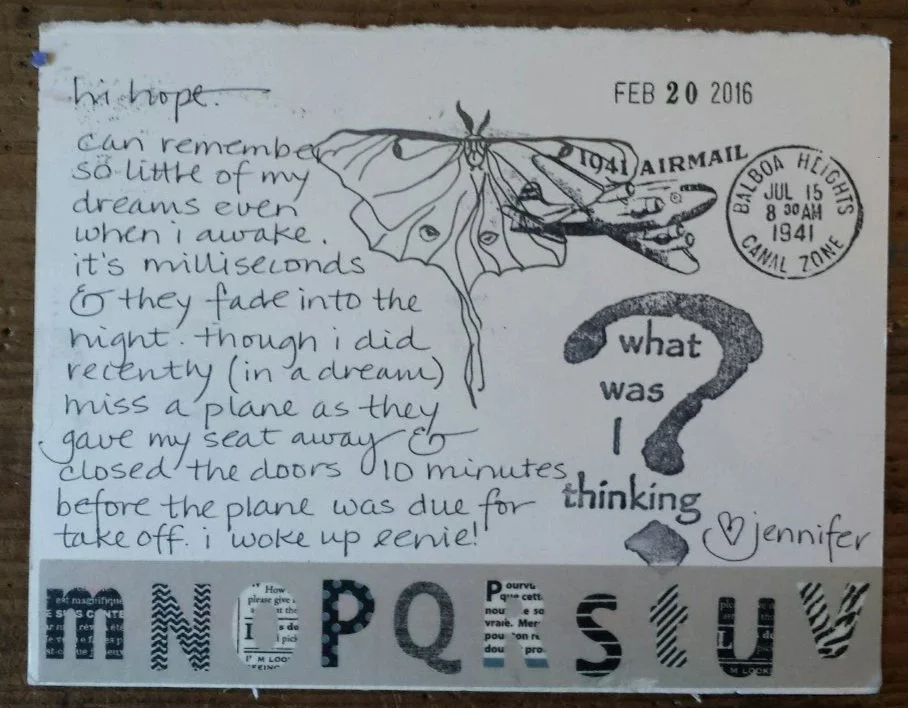 hi hope.
FEB 20 2016
can remember
so little of my
dreams even
when i awake.
it's milliseconds
& they fade into the
night. though i did
recently (in a dream)
miss a plane as they
gave my seat away &
closed the doors 10 minutes
before the plane was due for
take off. i woke up eenie!
1941 AIRMAIL
BALBOA HEIGHTS
JUL 15
8 30 AM
1941
CANAL ZONE
what
was
I
thinking
?
♡ jennifer
m N O P Q R S t u V
How
please give
I
I'M LOO
Pourvu
que cett
vraie. Mer